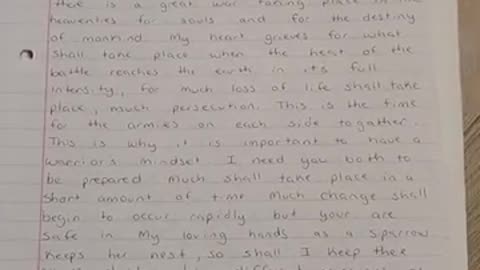 there is a great war taking place in the
heavenlies for souls and for the destiny
of mankind My heart grieves for what
shall take place when the heat of the
battle reaches the earth in its full
intensity, for much loss of life shall take
place, much persecution. This is the time
for the armies on each side togather.
This is why it is important to have a
warriors mindset I need you both to
be prepared Much shall take place in a
short amount of time Much change shall
begin to occur rapidly but your are
safe in My loving hands as a sparrow
keeps her nest, so shall I keep thee